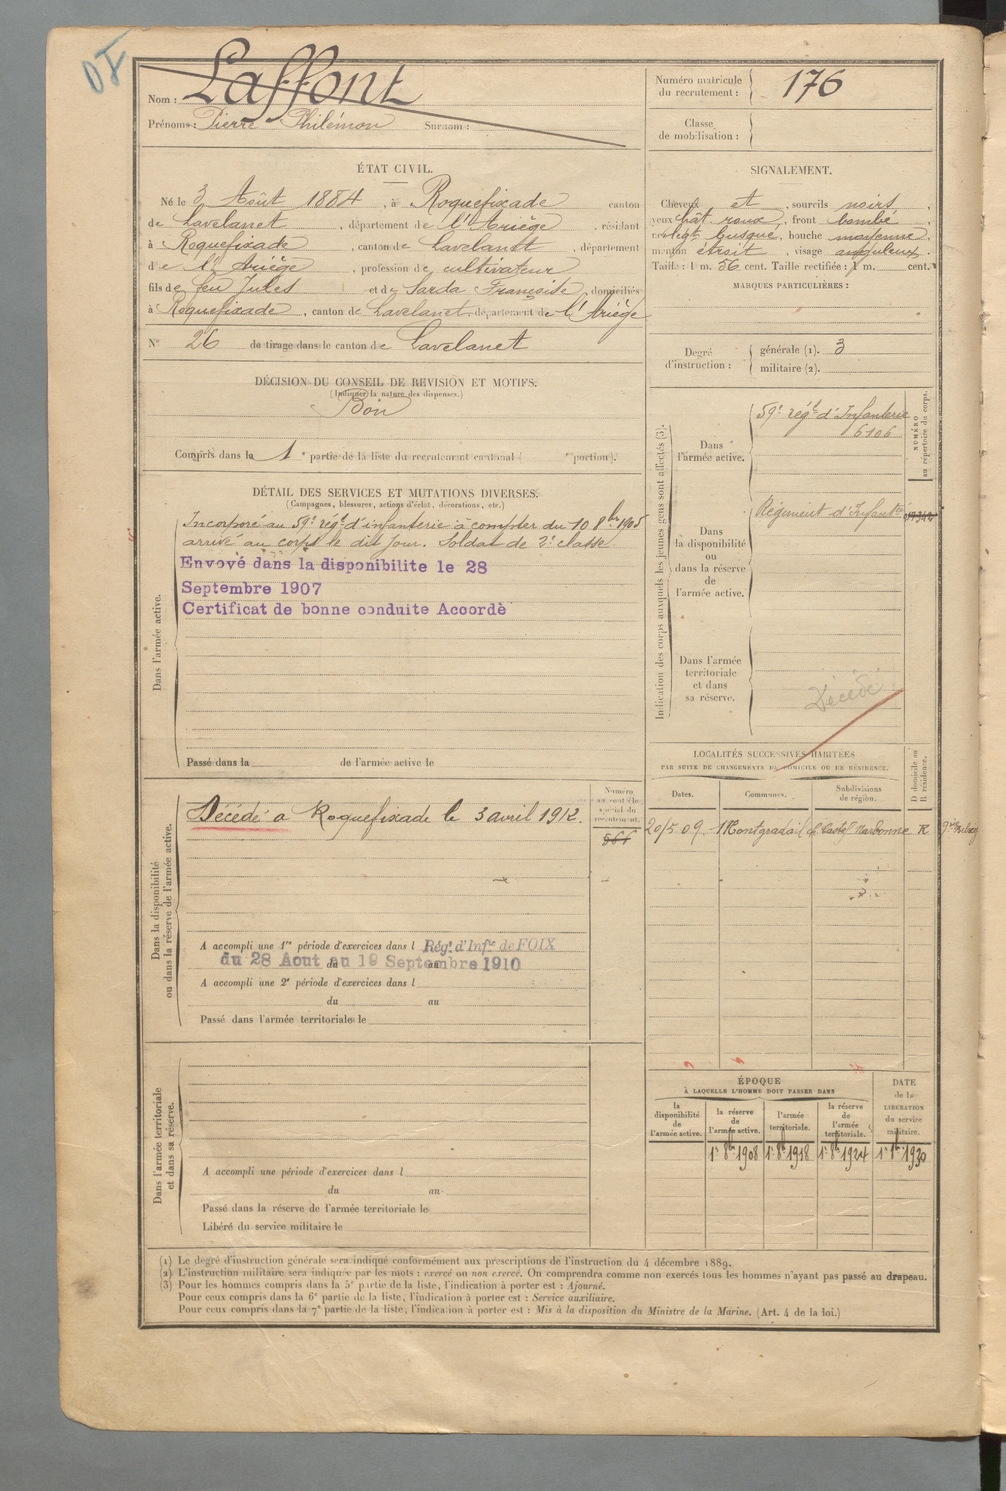 Nom : Laffont
Prénoms : Pierre Philémon Surnom :
Numéro matricule
du recrutement : 176
Classe
de mobilisation :
ÉTAT CIVIL.
Né le 3 Août 1884, à Roquefixade canton
de Lavelanet, département de l'Ariège, résidant
à Roquefixade, canton de Lavelanet, département
de l'Ariège, profession de cultivateur
fils de feu Jules et de Sarda Françoise, domiciliés
à Roquefixade, canton de Lavelanet, département de l'Ariège
N° 26 de tirage dans le canton de Lavelanet
SIGNALEMENT.
Cheveux et, sourcils noirs,
yeux chât. roux, front bombé
busqué, bouche moyenne,
menton étroit, visage anguleux.
Taille : 1 m. 56 cent. Taille rectifiée : 1 m. cent.
MARQUES PARTICULIÈRES :
Degré
d'instruction :
générale (1). 3
militaire (2).
DÉCISION DU CONSEIL DE REVISION ET MOTIFS.
(Indiquer la nature des dispenses.)
Bon
Compris dans la 1e partie de la liste du recrutement cantonal ( e portion).
DÉTAIL DES SERVICES ET MUTATIONS DIVERSES.
(Campagnes, blessures, actions d'éclat, décorations, etc.)
Dans l'armée active.
Incorporé au 59e régt d'infanterie à compter du 10 8bre 1905
arrivé au corps le dit jour. Soldat de 2e classe.
Envoyé dans la disponibilite le 28
Septembre 1907
Certificat de bonne conduite Accordè
Passé dans la de l'armée active le
Indication des corps auxquels les jeunes gens sont affectés (3).
NUMÉRO
au répertoire du corps.
Dans
l'armée active.
59e régt d'Infanterie
6106
Dans
la disponibilité
ou
dans la réserve
de
l'armée active.
Régiment d'Infanterie
Dans l'armée
territoriale
et dans
sa réserve.
Décédé
LOCALITÉS SUCCESSIVES HABITÉES
PAR SUITE DE CHANGEMENTS DE DOMICILE OU DE RÉSIDENCE.
Dates. Communes. Subdivisions
de région.
D domicile ou
R résidence.
20/5 09 Montgradail Narbonne R
Dans la disponibilité
ou dans la réserve de l'armée active.
Numéro
au contrôle
spécial du
recrutement.
Décédé à Roquefixade le 3 avril 1912.
A accompli une 1re période d'exercices dans l Régt d'Infie de FOIX
du 28 Aout au 19 Septembre 1910
A accompli une 2e période d'exercices dans l
du au
Passé dans l'armée territoriale le
Dans l'armée territoriale
et dans sa réserve.
A accompli une période d'exercices dans l
du au
Passé dans la réserve de l'armée territoriale le
Libéré du service militaire le
ÉPOQUE
À LAQUELLE L'HOMME DOIT PASSER DANS
la
disponibilité
de
l'armée active.
la réserve
de
l'armée active.
l'armée
territoriale.
la réserve
de
l'armée
territoriale.
DATE
de la
LIBÉRATION
du service
militaire.
1er 8bre 1908 1er 8bre 1918 1er 8bre 1924 1er 8bre 1930
(1) Le degré d'instruction générale sera indiqué conformément aux prescriptions de l'instruction du 4 décembre 1889.
(2) L'instruction militaire sera indiquée par les mots : exercé ou non exercé. On comprendra comme non exercés tous les hommes n'ayant pas passé au drapeau.
(3) Pour les hommes compris dans la 5e partie de la liste, l'indication à porter est : Ajourné.
Pour ceux compris dans la 6e partie de la liste, l'indication à porter est : Service auxiliaire.
Pour ceux compris dans la 7e partie de la liste, l'indication à porter est : Mis à la disposition du Ministre de la Marine. (Art. 4 de la loi.)